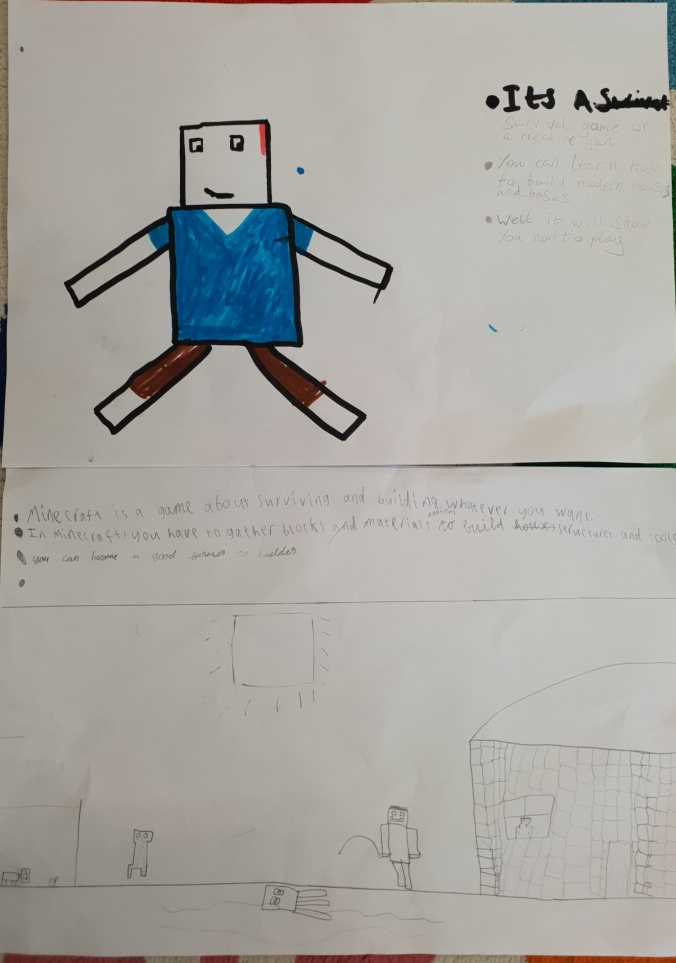 • Its A
Survival game or
a creative gam
• You can learn how
to build modern
and bases
• Well it will show
you how to play
• Minecraft is a game about surviving and building whatever you want.
• In Minecraft, you have to gather blocks and materials to build houses structures and
• you can become a good farmer or builder